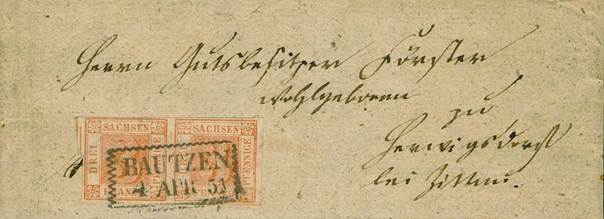 Herrn Gutsbesitzer Förster
Wohlgeboren
zu
Herwigsdorf
bei Zittau.
SACHSEN SACHSEN
DREI PFENNIGE
FRANCO
BAUTZEN
4 APR 51